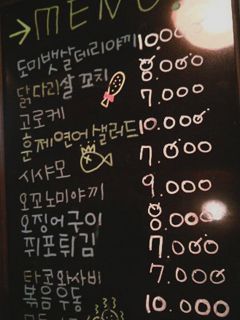 →MENU.
도미뱃살데리야끼 10.000
닭다리살꼬치 8.000
고로케 7.000
훈제연어샐러드 10.000
시샤모 7.000
오꼬노미야끼 9.000
오징어구이 8.000
쥐포튀김 7.000
타코와사비 7.000
볶음우동 10.000